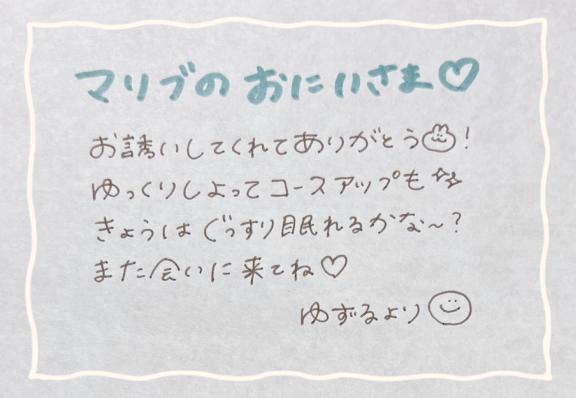 マリブのおにいさま♡
お誘いしてくれてありがとう!
ゆっくりしよってコースアップも✨
きょうはぐっすり眠れるかな〜?
また会いに来てね♡
ゆずるより